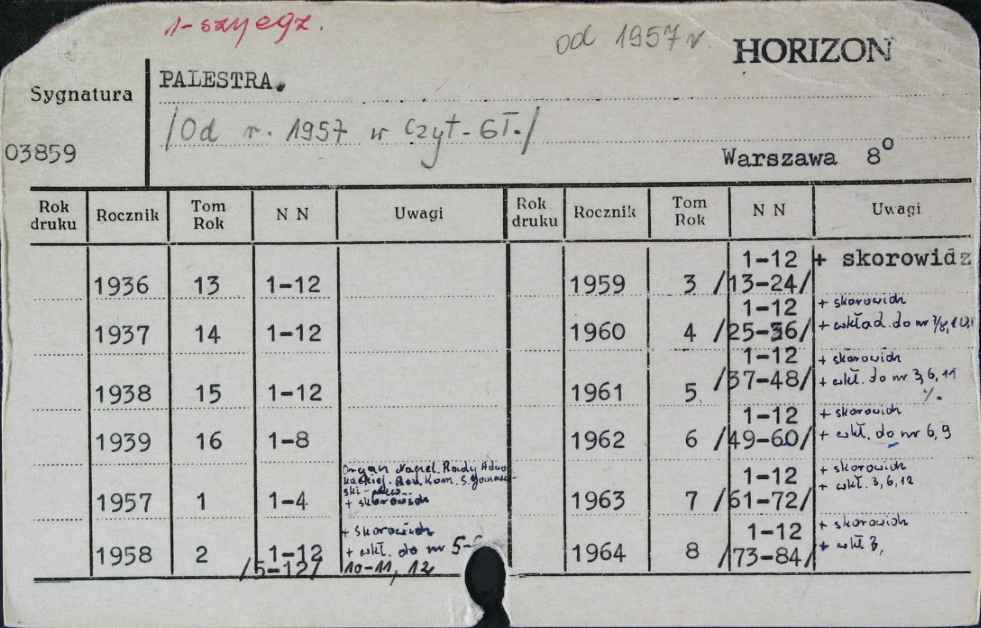 1-szy egz.
od 1957 r.
HORIZON
Sygnatura
PALESTRA.
/Od r. 1957 w Czyt-Gł./
03859
Warszawa 8°
Rok druku Rocznik Tom Rok N N Uwagi Rok druku Rocznik Tom Rok N N Uwagi
1936 13 1-12
1937 14 1-12
1938 15 1-12
1939 16 1-8
1957 1 1-4 Organ Naczel. Rady Adwo
+ skorowidz
1958 2 1-12 /5-12/ + skorowidz
+ wkł. do nr 5-
10-11, 12
1959 3 1-12 /13-24/ + skorowidz
1960 4 1-12 /25-36/ + skorowidz
+ wkład. do nr 7/8,
1961 5 1-12 /37-48/ + skorowidz
+ wkł. do nr 3, 6, 11
1962 6 1-12 /49-60/ + skorowidz
+ wkł. do nr 6, 9
1963 7 1-12 /61-72/ + skorowidz
+ wkł. 3, 6, 12
1964 8 1-12 /73-84/ + skorowidz
+ wkł 3,